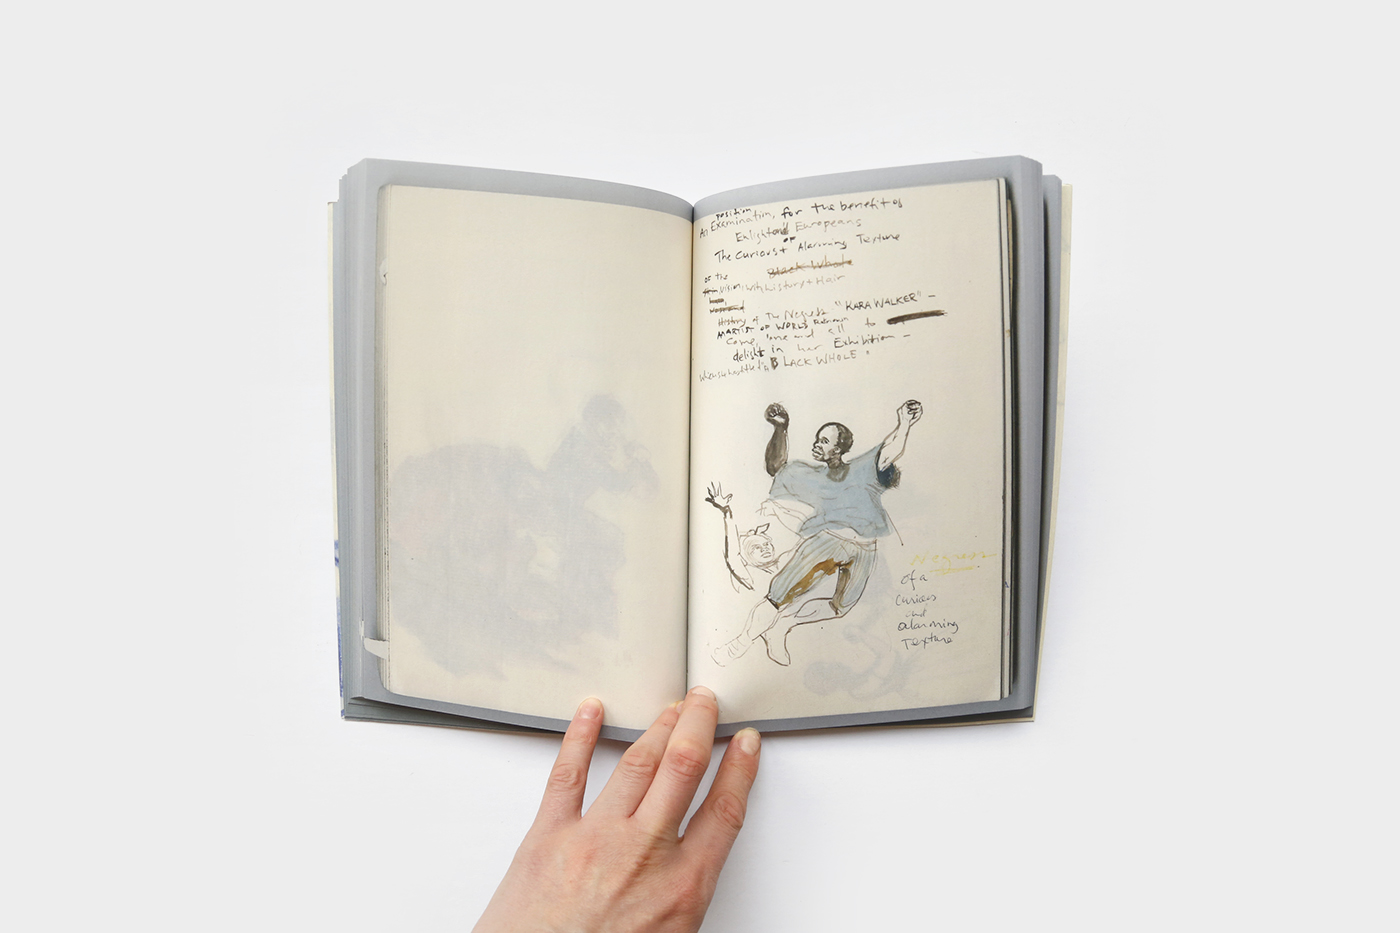 position
An Examination, for the benefit of
Enlightened Europeans
of
The Curious + Alarming Texture
of the Black Whole
vision, with history + Hair
History of The Negress "KARA WALKER" –
ARTIST OF WORLD Renown
Come, one and all to
delight in her Exhibition –
"BLACK WHOLE"
Negress
of a
Curious
and
alarming
Texture